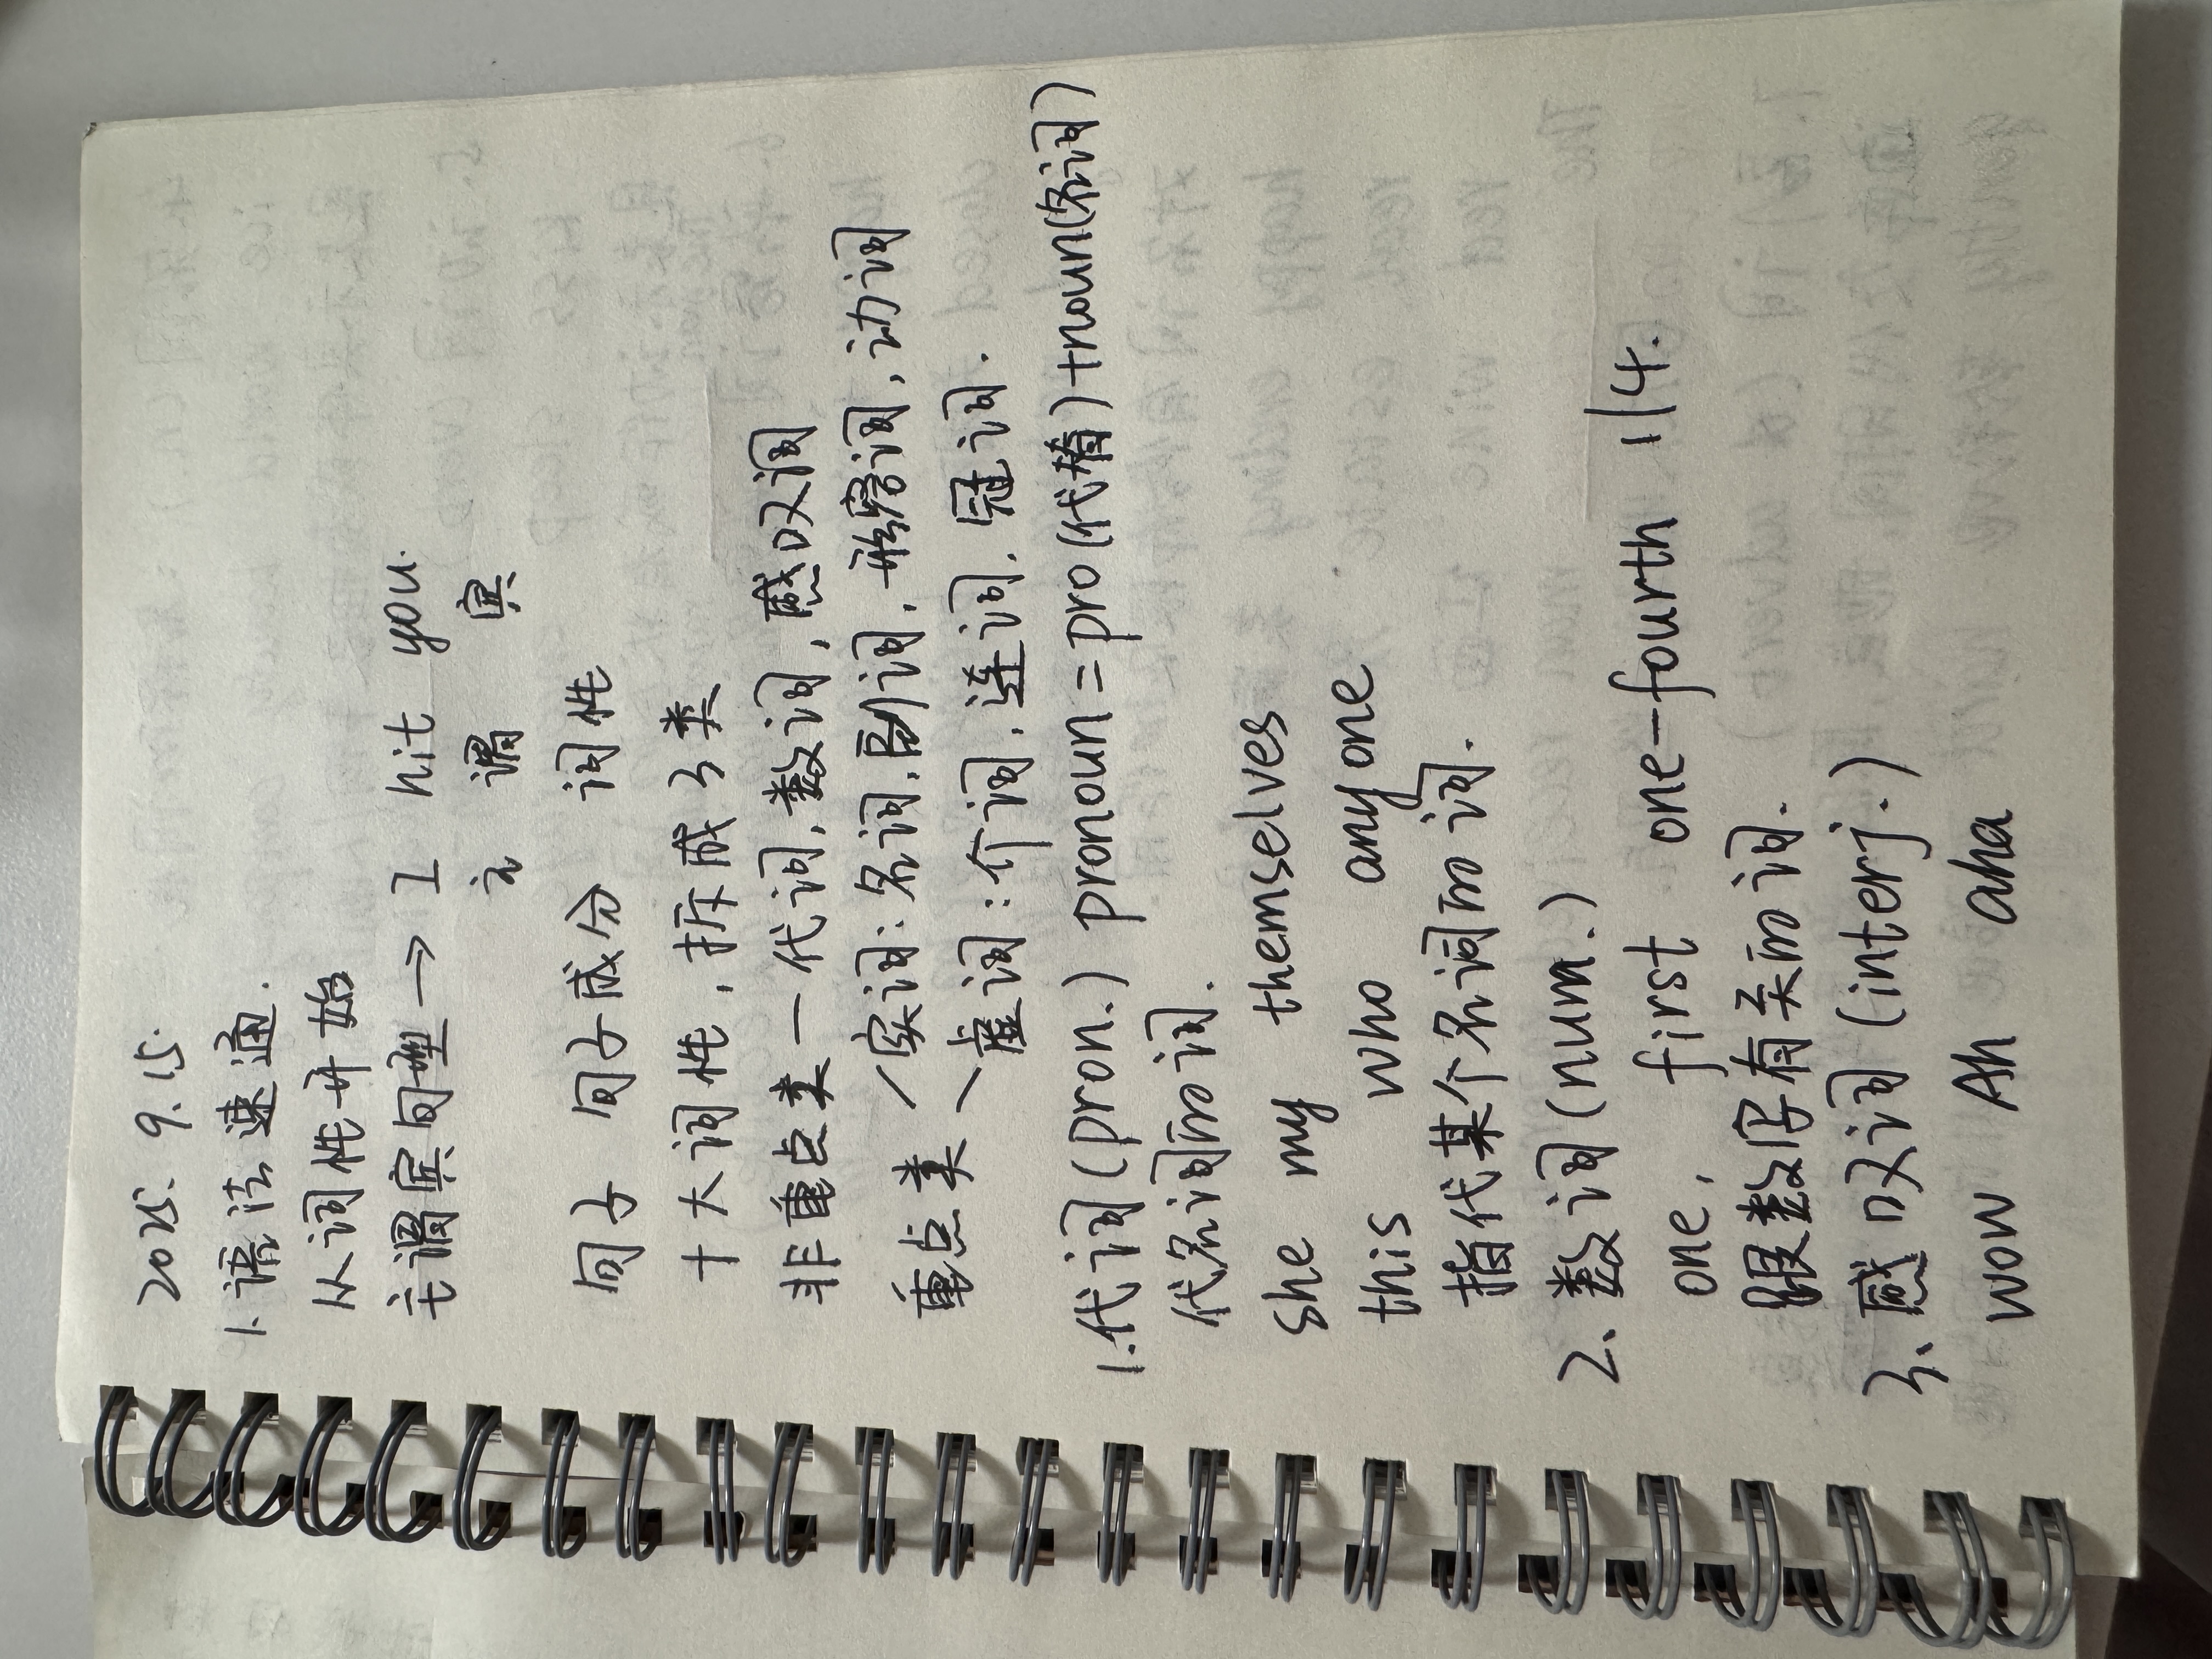 2025. 9.15.
1. 语法速通.
从词性开始
主谓宾句型→ I hit you.
主 谓 宾
句子 句子成分 词性
十大词性,拆成3类
非重点类一代词,数词,感叹词
重点类 实词:名词,副词,形容词,动词
虚词:介词,连词,冠词.
1.代词(pron.) pronoun=pro(代替)+noun(名词)
代名词的词.
she my themselves
this who anyone
指代某个名词的词.
2. 数词(num.)
one, first one-fourth 1/4.
跟数字有关的词.
3. 感叹词(interj.)
wow Ah aha